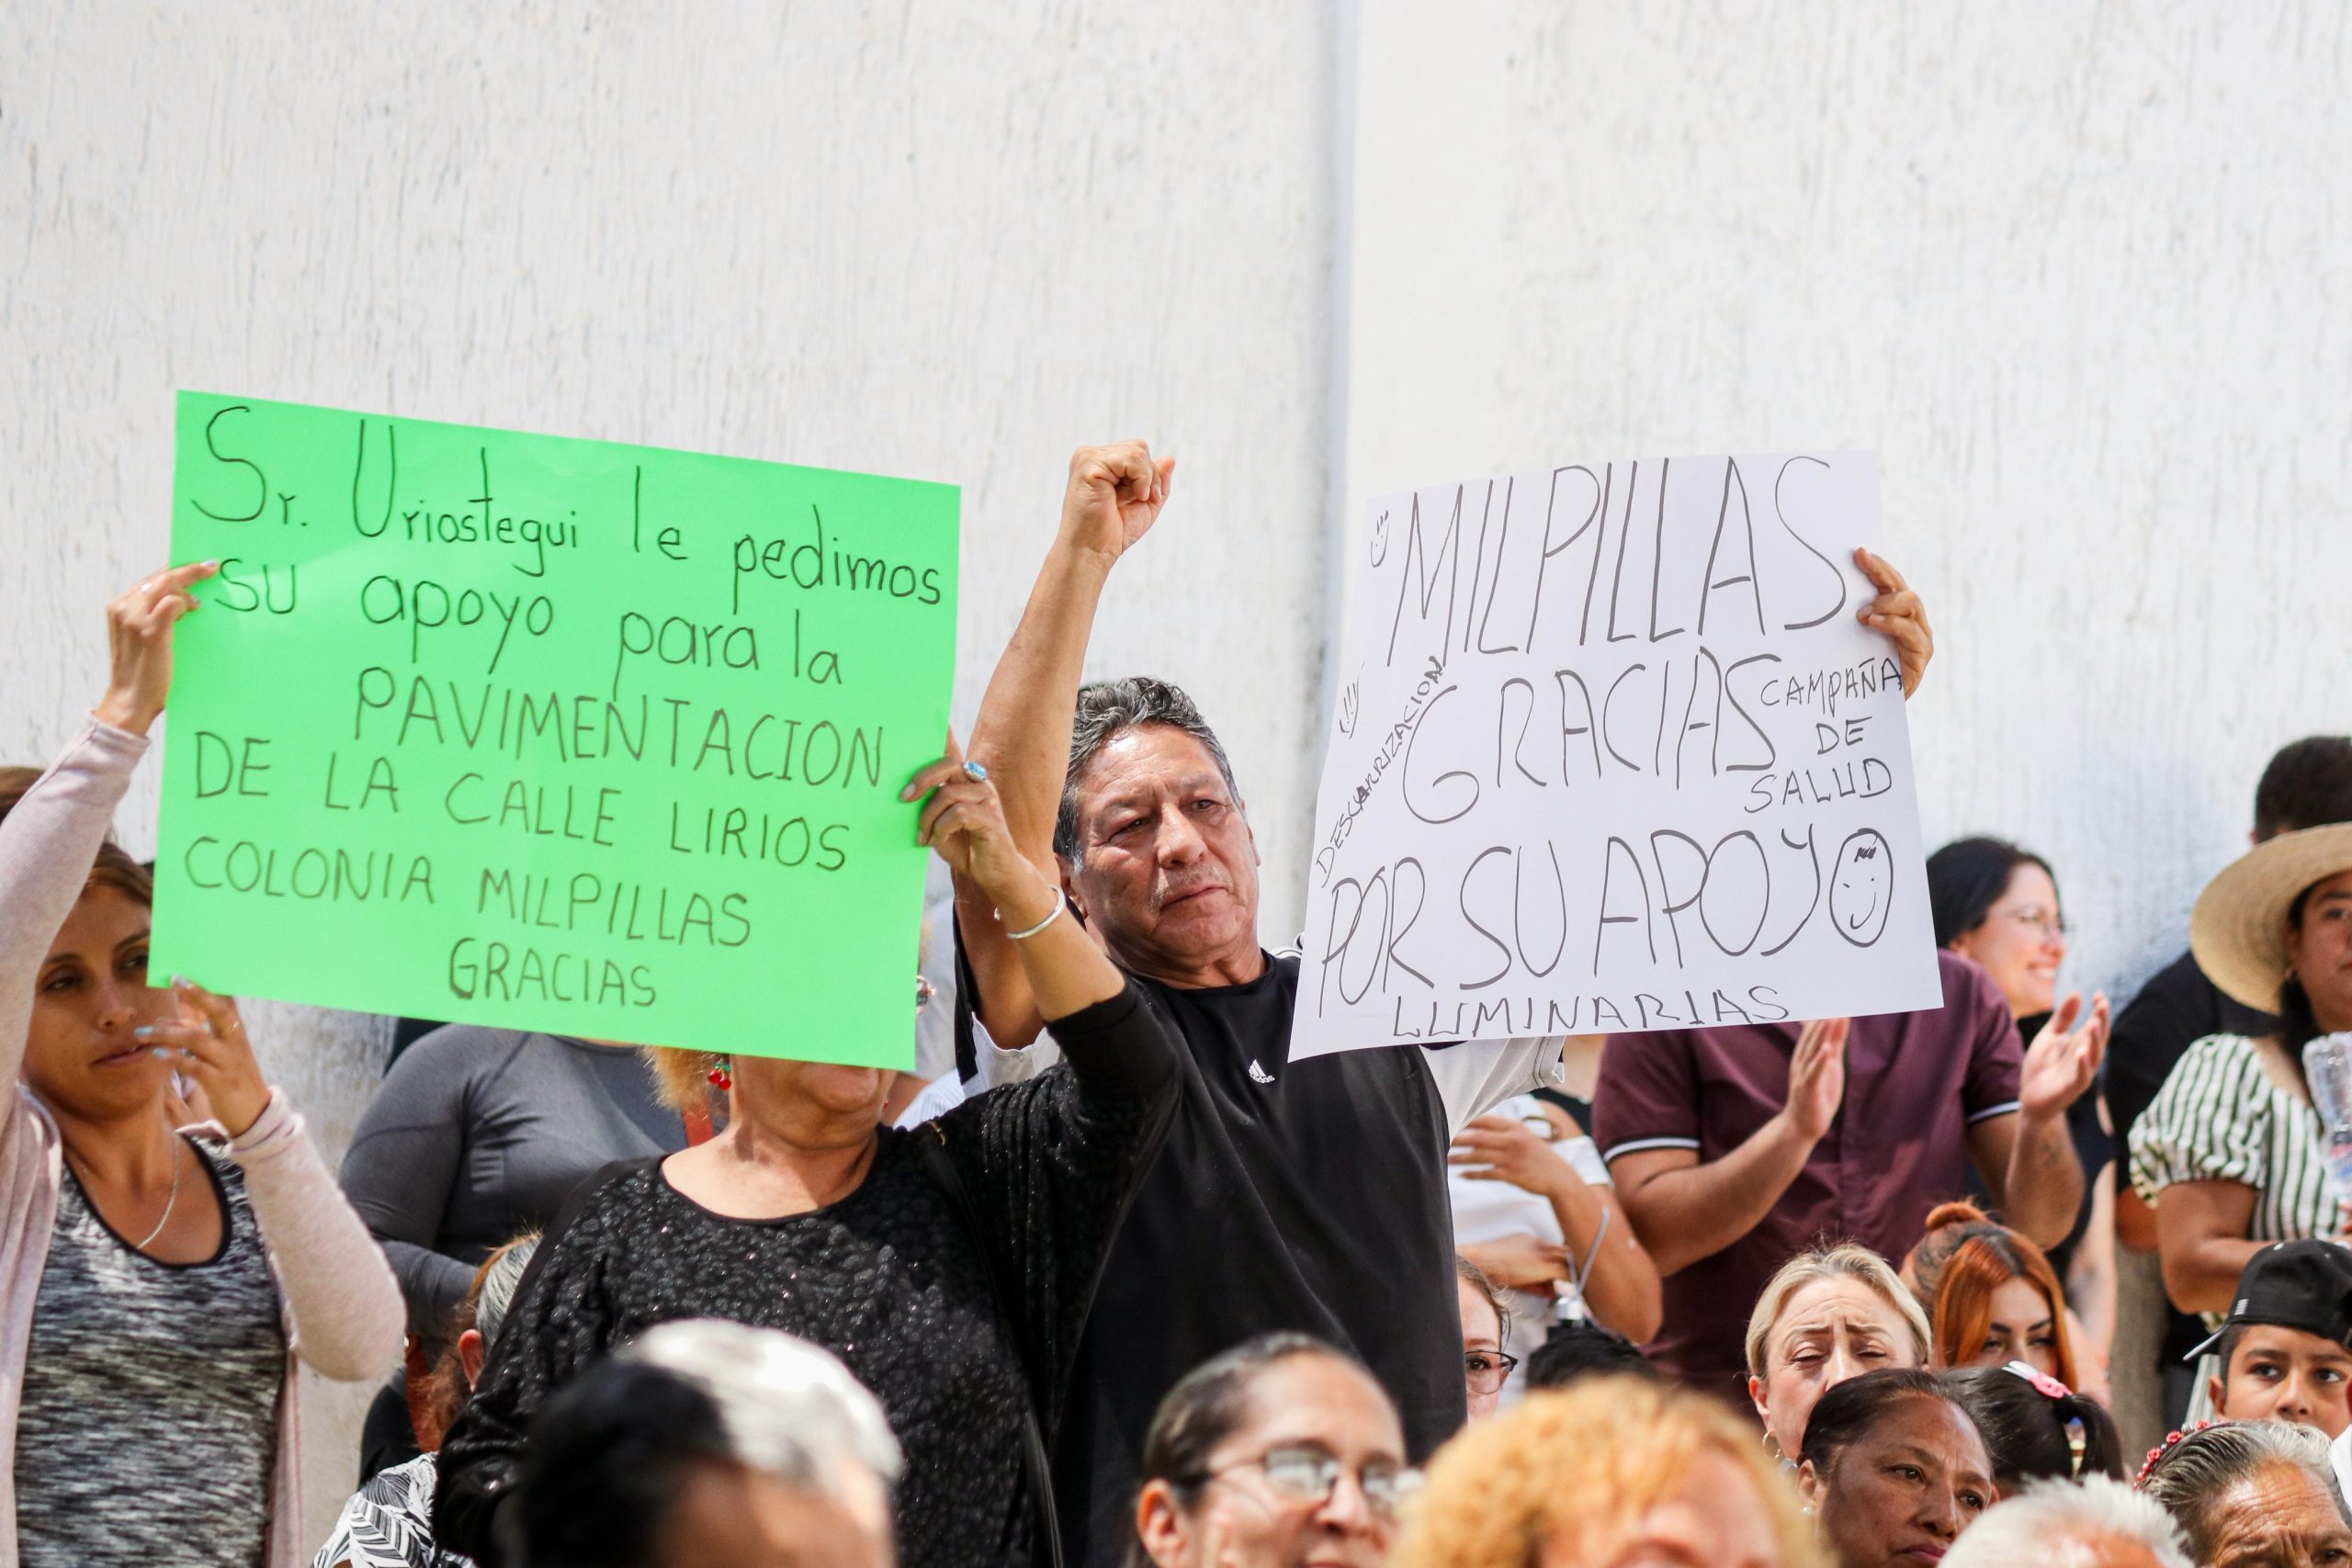 Sr. Uriostegui le pedimos
su apoyo para la
PAVIMENTACION
DE LA CALLE LIRIOS
COLONIA MILPILLAS
GRACIAS
MILPILLAS
GRACIAS
CAMPAÑA
DE
SALUD
DESCARRIZACION
POR SU APOYO
LUMINARIAS
adidas